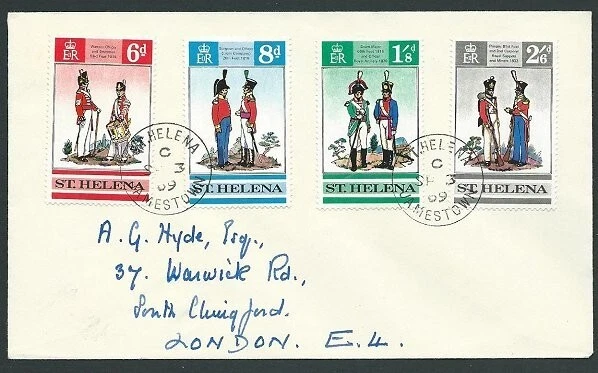 E II R 6d
Warrant Officer
and Drummer
53rd Foot 1815
ST. HELENA
E II R 8d
Surgeon and Officer
20th Foot 1816
ST. HELENA
E II R 1/8
Drum Major
66th Foot 1816
and Officer
Royal Artillery 1820
ST. HELENA
E II R 2/6
Private 91st Foot
and 2nd Corporal
Royal Sappers
and Miners 1832
ST. HELENA
ST. HELENA
C
SP 3
69
JAMESTOWN
ST. HELENA
C
SP 3
69
JAMESTOWN
A. G. Hyde, Esq.,
37, Warwick Rd.,
South Chingford.
LONDON. E.4.